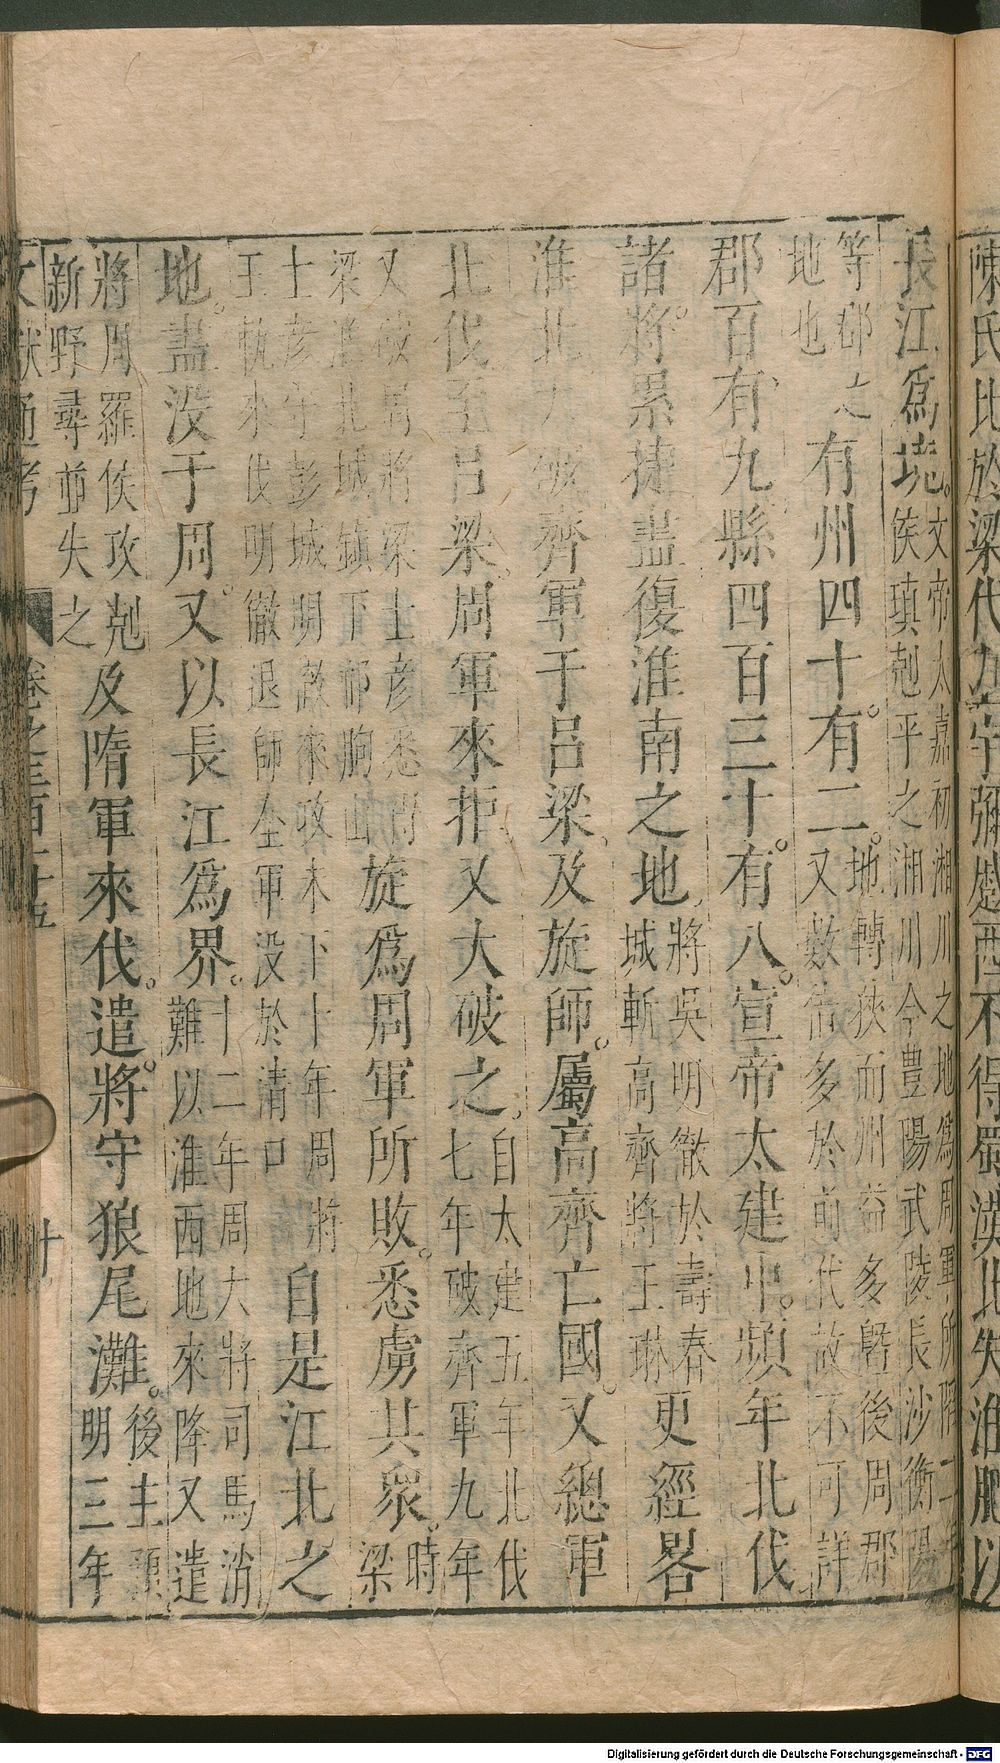 陳氏比於梁代土宇彌蹙西不得蜀漢北失淮肥以
長江爲境。文帝太嘉初湘川之地爲周軍所陷二年
侯瑱剋平之湘川今豊陽武陵長沙衡陽
等郡之
地也
有州四十。有二。地轉狹而州益多曁後周郡
又數倍多於前代故不可詳
郡百有九縣四百三十。有八。宣帝太建中。頻年北伐
諸將。累捷盡復淮南之地將吳明徹於壽春
城斬高齊將王琳
更經畧
淮北大破齊軍于呂梁及旋師。屬高齊亡國。又總軍
北伐至呂梁周軍來拒又大破之。自太建五年北伐
七年破齊軍九年
又破周將梁士彦悉得
梁淮北城鎮下邳朐山
旋爲周軍所敗。悉虜共衆。時
梁
士彦守彭城明徹來攻未下十年周將
王軌來伐明徹退師全軍没於清口
自是江北之
地。盡没于周。又以長江爲界。十二年周大將司馬消
難以淮西地來降又遣
將周羅侯攻剋
新野尋並失之
及隋軍來伐。遣將守狼尾灘。後主禎
明三年
文獻通考 卷之三百一十五 廿
Digitalisierung gefördert durch die Deutsche Forschungsgemeinschaft - DFG